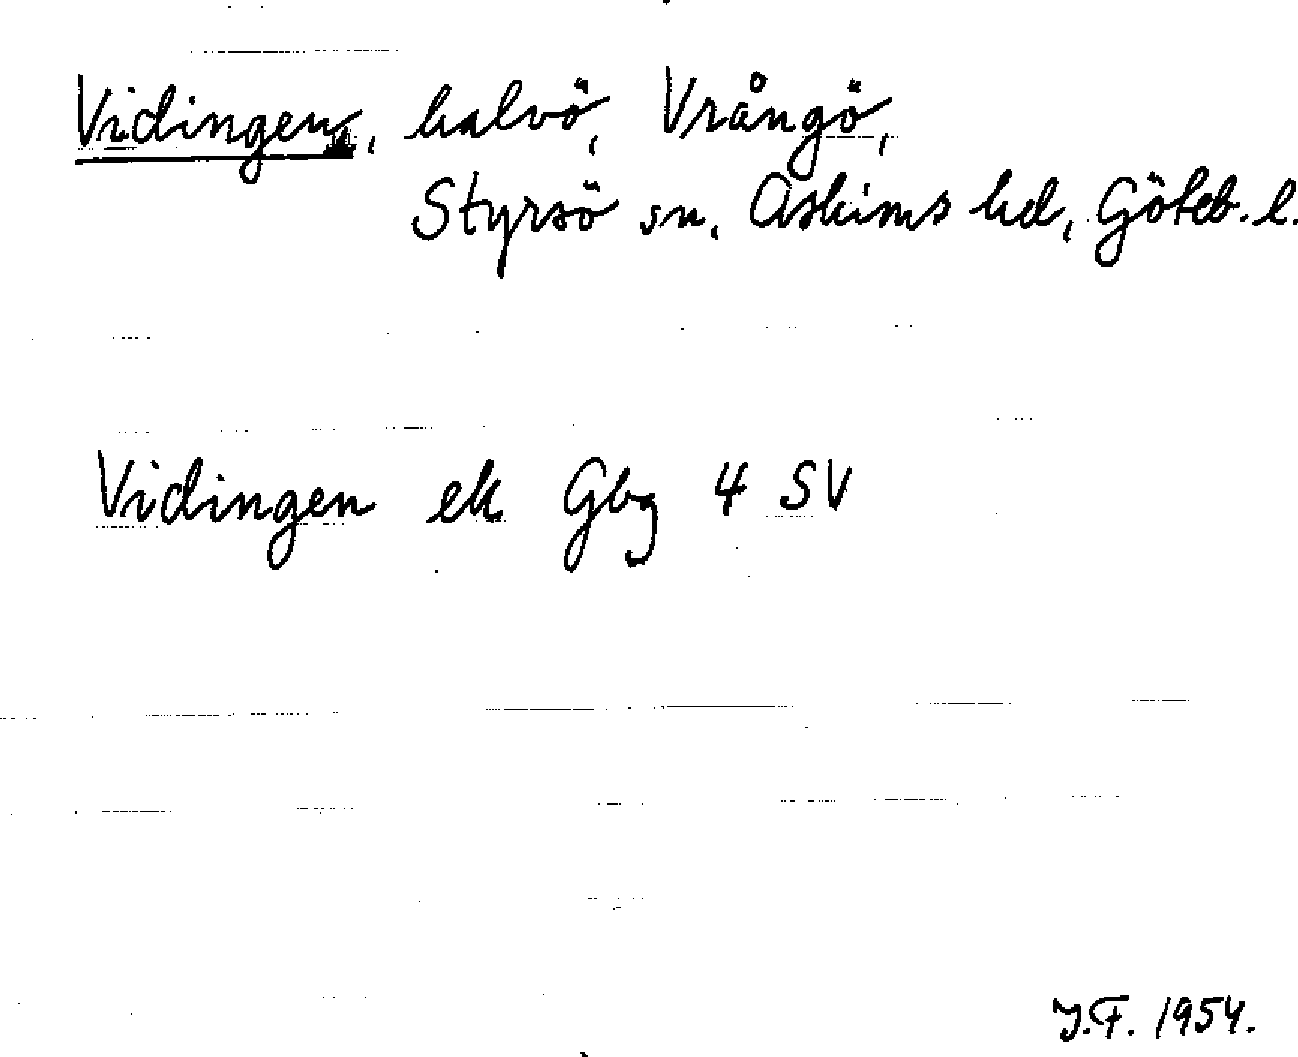 Vidingen, halvö, Vrångö,
Styrsö sn, Askims hd, Göteb. l.
Vidingen ek Gbg 4 SV
J.F. 1954.